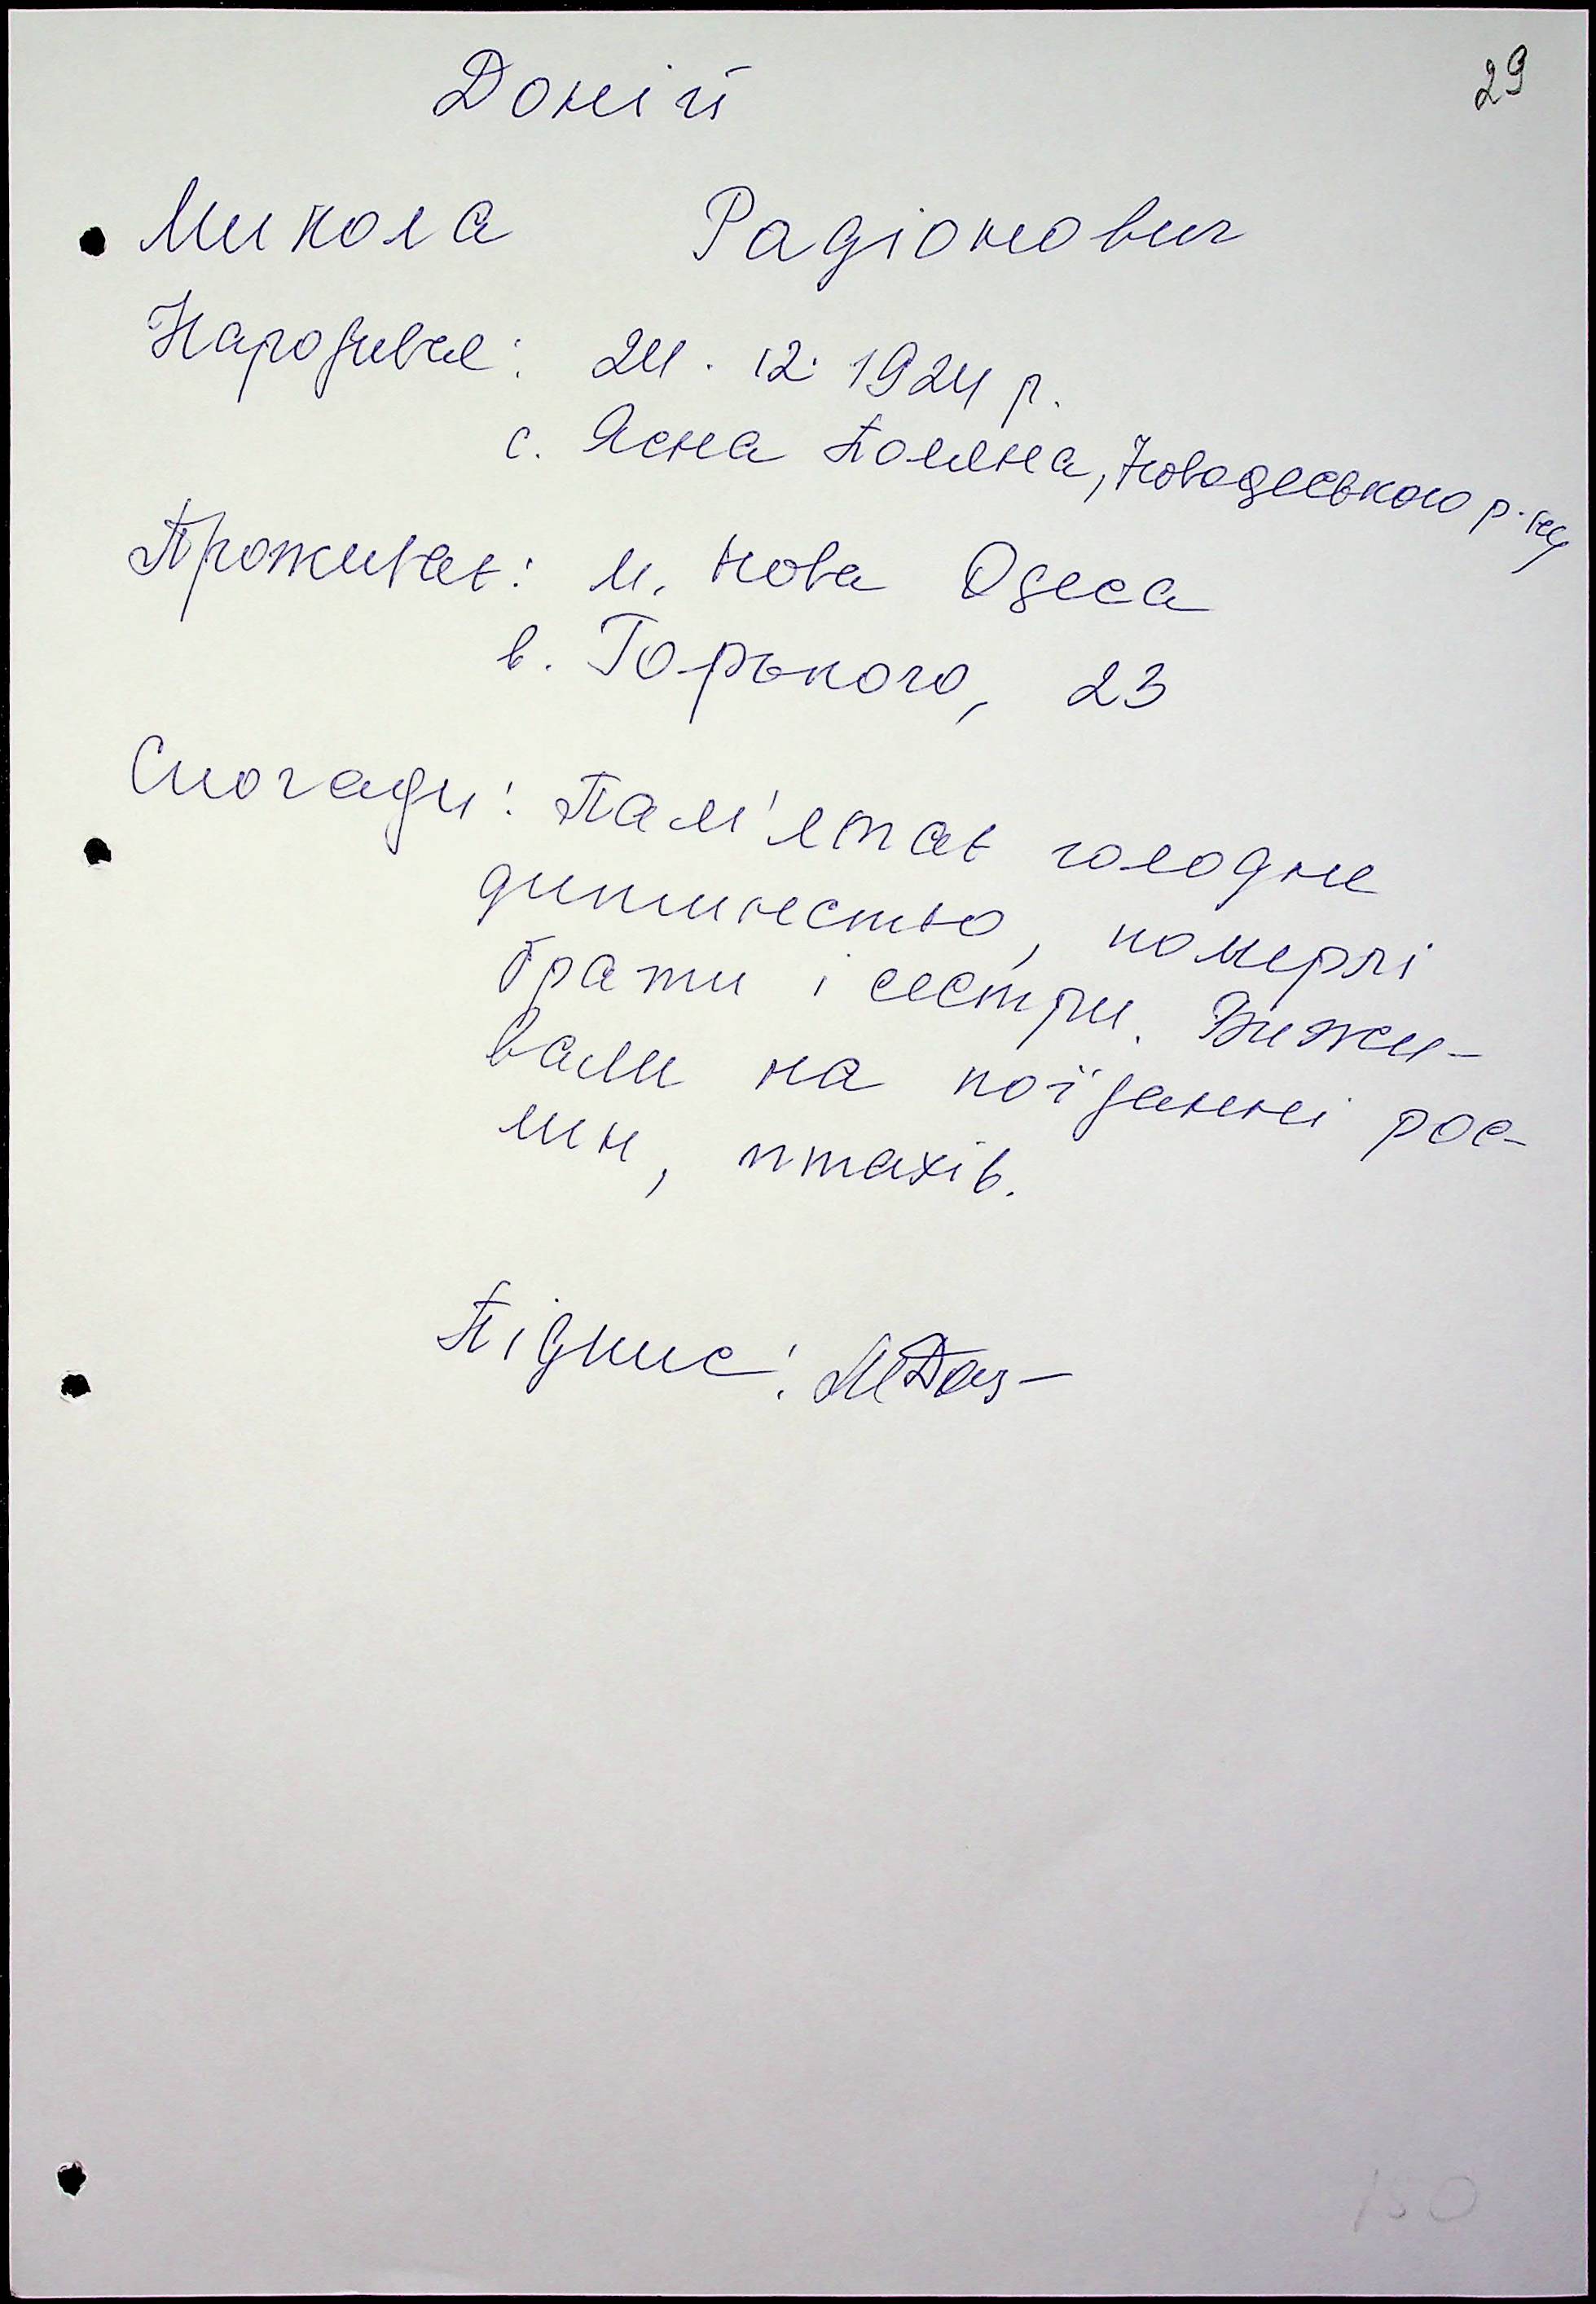 29
Доній
Микола Радіонович
Народився: 24.12.1924 р.
с. Ясна Поляна, Новоодеського р-ну
Проживає: м. Нова Одеса
в. Горького, 23
Спогади: Пам'ятає голодне
дитинство, померлі
брати і сестри. Вижи-
вали на поїданні рос-
лин, птахів.
Підпис:
150